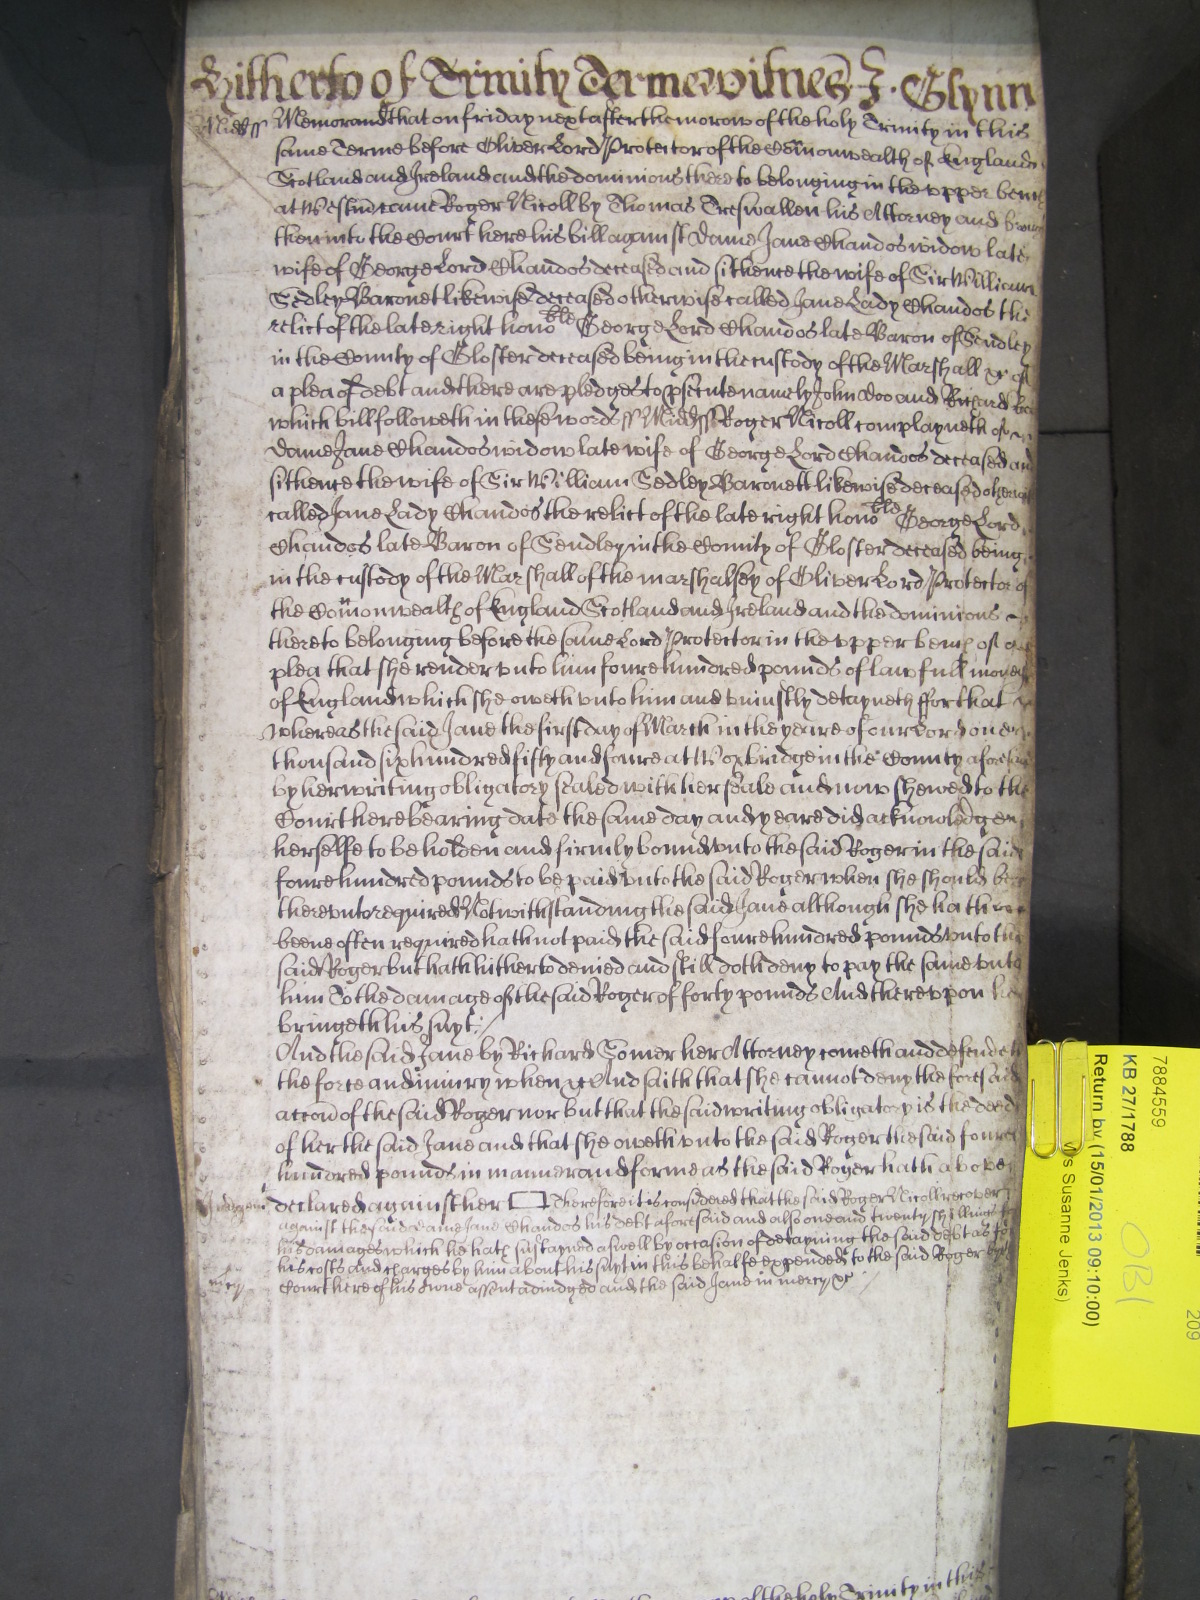 Hitherto of Trinity Terme witnes J. Glynn
Midds ss Memorand that on friday next after the morow of the holy Trinity in this
same Terme before Oliver Lord Protector of the Comonwealth of England
Scotland and Ireland and the dominions thereto belonging in the vpper bench
at Westm came Roger Nicoll by Thomas Treswallen his Attorney and brought
then into the Court here his bill against Dame Jane Chandos widow late
wife of George Lord Chandos deceased and sithence the wife of Sir William
Sedley Baronet likewise deceased otherwise called Jane Lady Chandos the
relict of the late right honoble George Lord Chandos late Baron of Sendley
in the County of Gloster deceased being in the custody of the Marshall &c of
a plea of debt and there are pledges to psecute namely John Doo and Richard Roo
which bill followeth in these words ss Midds ss Roger Nicoll complayneth of
Dame Jane Chandos widow late wife of George Lord Chandos deceased and
sithence the wife of Sir William Sedley Baronett likewise deceased otherwise
called Jane Lady Chandos the relict of the late right honoble George Lord
Chandos late Baron of Sendley in the County of Gloster deceased being
in the custody of the Marshall of the marshalsey of Oliver Lord Protector of
the Comonwealth of England Scotland and Ireland and the dominions
thereto belonging before the same Lord Protector in the vpper bench of a
plea that she render vnto him foure hundred pounds of lawfull money
of England which she oweth vnto him and vniustly detayneth ffor that
whereas the said Jane the first day of March in the yeare of our Lord one
thousand six hundred fifty and foure at Woxbridge in the County aforesaid
by her writing obligatory sealed with her seale and now shewed to the
Court here bearing date the same day and yeare did acknowledge
herselfe to be holden and firmly bound vnto the said Roger in the said
foure hundred pounds to be paid vnto the said Roger when she should bee
therevnto required Notwithstanding the said Jane although she hath
beene often required hath not paid the said foure hundred pounds vnto the
said Roger but hath hitherto denied and still doth deny to pay the same vnto
him To the damage of the said Roger of forty pounds And therevpon he
bringeth his suyt
And the said Jane by Richard Somer her Attorney cometh and defendeth
the force and iniury when &c And saith that she cannot deny the foresaid
accon of the said Roger nor but that the said writing obligatory is the deed
of her the said Jane and that she oweth vnto the said Roger the said foure
hundred pounds in manner and forme as the said Roger hath above
declared against her Therefore it is considered that the said Roger Nicoll recover
against the said Dame Jane Chandos his debt aforesaid and also one and twenty shillings for
his damages which he hath sustayned aswell by occasion of detayning the said debt as for
his costs and charges by him about his suyt in this behalfe expended to the said Roger by the
mcy Court here of his owne assent adiudged and the said Jane in mercy &c
of the holy Trinity in this
7884559
KB 27/1788
Return by (15/01/2013 09:10:00)
Ms Susanne Jenks)
OBI
209